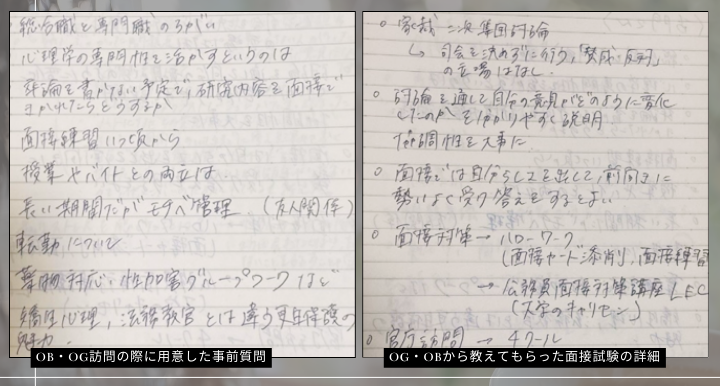 総合職と専門職のちがい
心理学の専門性を活かすというのは
卒論を書かない予定で、研究内容を面接で
きかれたらどうするか
面接練習いつ頃から
授業やバイトとの両立は
長い期間だがモチベ管理 (友人関係)
転勤について
薬物対応・性加害グループワークなど
矯正心理、法務教官とは違う更生保護の
魅力
OB・OG訪問の際に用意した事前質問
○ 家裁 二次 集団討論
↳ 司会を決めずに行う、「賛成・反対」
の立場はなし。
○ 討論を通して自分の意見がどのように変化
したのかを分かりやすく説明
協調性を大事に
○ 面接では自分らしさを出して、前向きに
勢いよく受け答えをするとよい
○ 面接対策→ハローワーク
(面接カード添削、面接練習
→公務員面接対策講座LEC
(大学のキャリセン)
○ 官庁訪問 → 4クール
OG・OBから教えてもらった面接試験の詳細